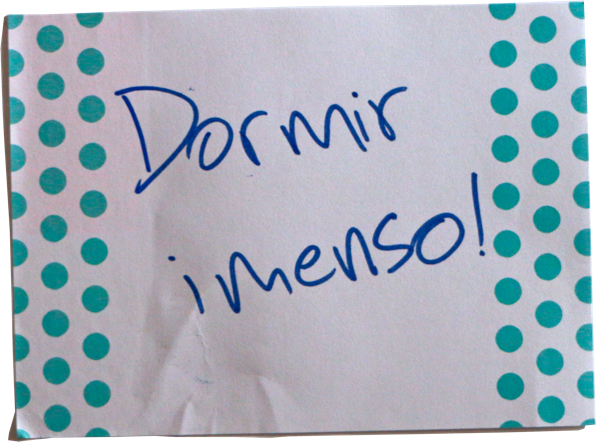 Dormir
imenso!